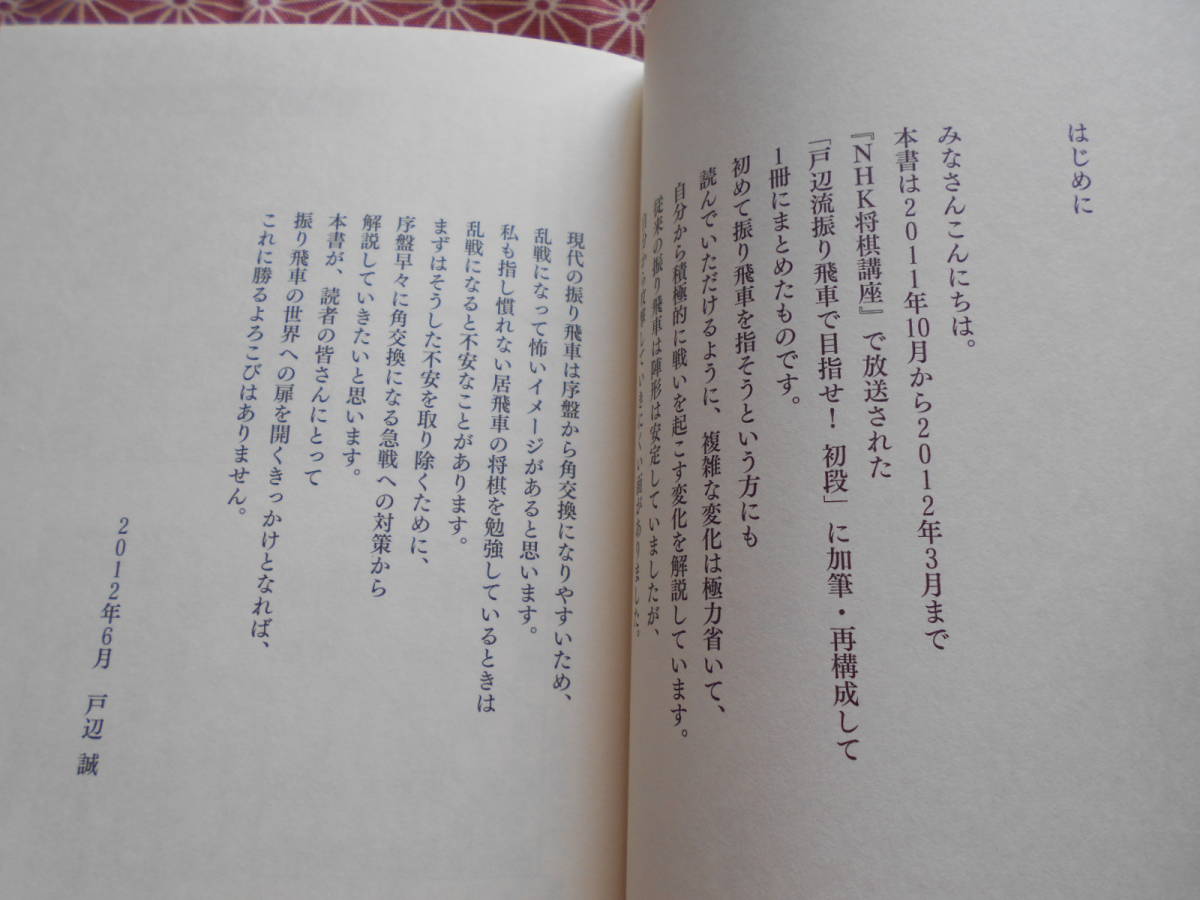 はじめに
みなさんこんにちは。
本書は2011年10月から2012年3月まで
『NHK将棋講座』で放送された
「戸辺流振り飛車で目指せ！初段」に加筆・再構成して
1冊にまとめたものです。
初めて振り飛車を指そうという方にも
読んでいただけるように、複雑な変化は極力省いて、
自分から積極的に戦いを起こす変化を解説しています。
従来の振り飛車は陣形は安定していましたが、
自分から攻撃していきにくい面がありました。
現代の振り飛車は序盤から角交換になりやすいため、
乱戦になって怖いイメージがあると思います。
私も指し慣れない居飛車の将棋を勉強しているときは
乱戦になると不安なことがあります。
まずはそうした不安を取り除くために、
序盤早々に角交換になる急戦への対策から
解説していきたいと思います。
本書が、読者の皆さんにとって
振り飛車の世界への扉を開くきっかけとなれば、
これに勝るよろこびはありません。
2012年6月 戸辺 誠